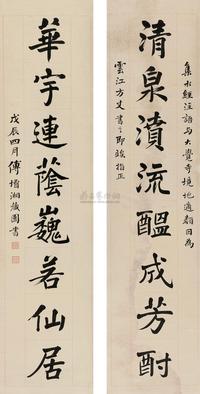 清泉濆流醞成芳酎
集水經注語与大覺寺境地適類因為
雲江方丈書之即竢指正
華宇連蔭巍若仙居
戊辰四月傅增湘藏園書